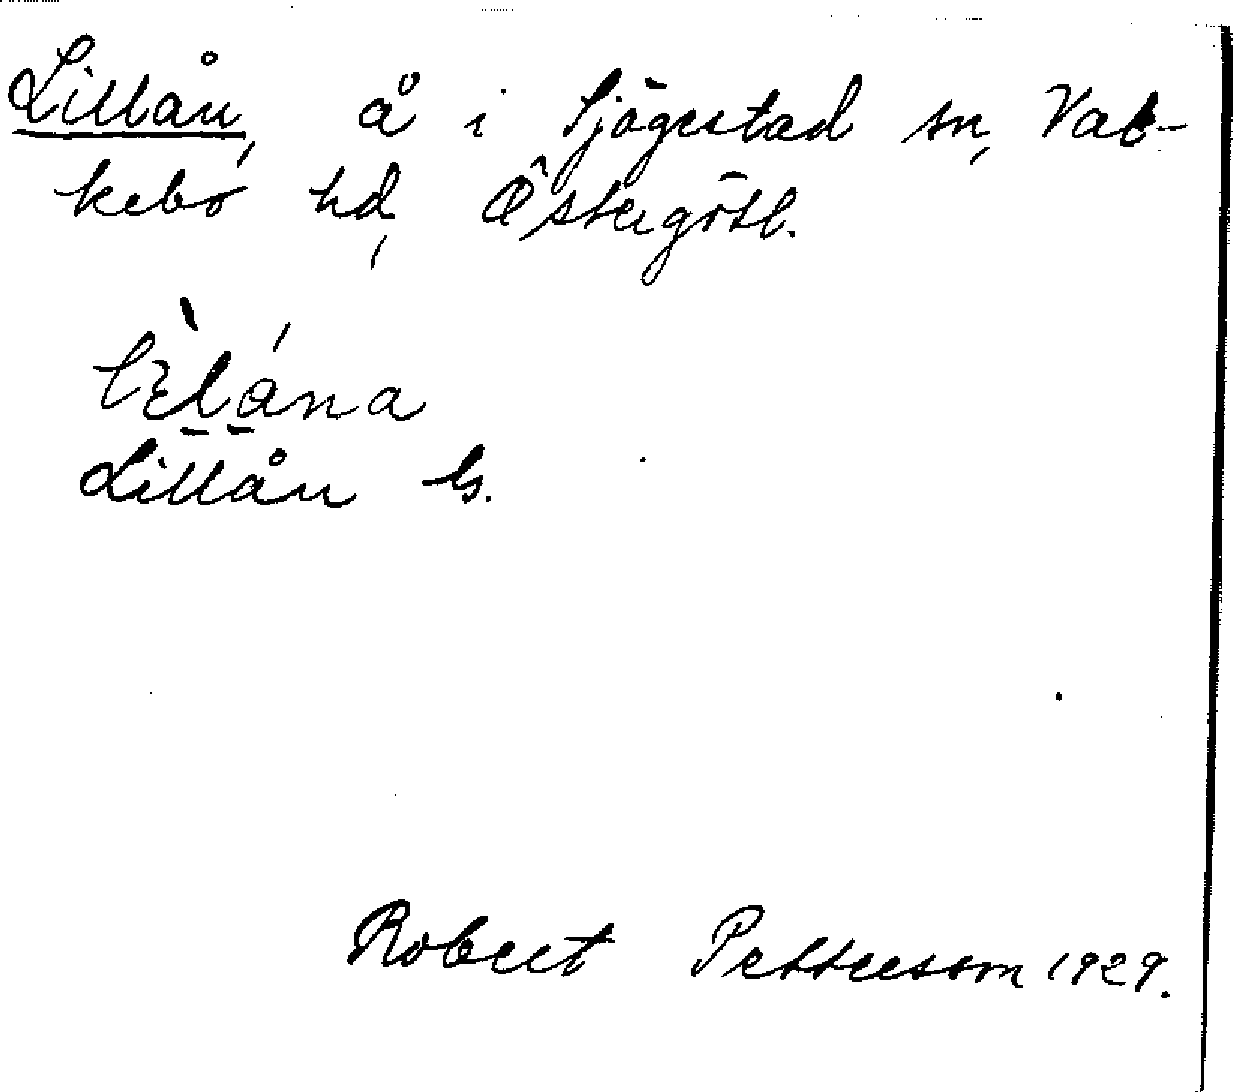 Lillån, å i Sjögestad sn, Val-
kebo hd, Östergötl.
Lillån Gs.
Robert Pettersson 1929.